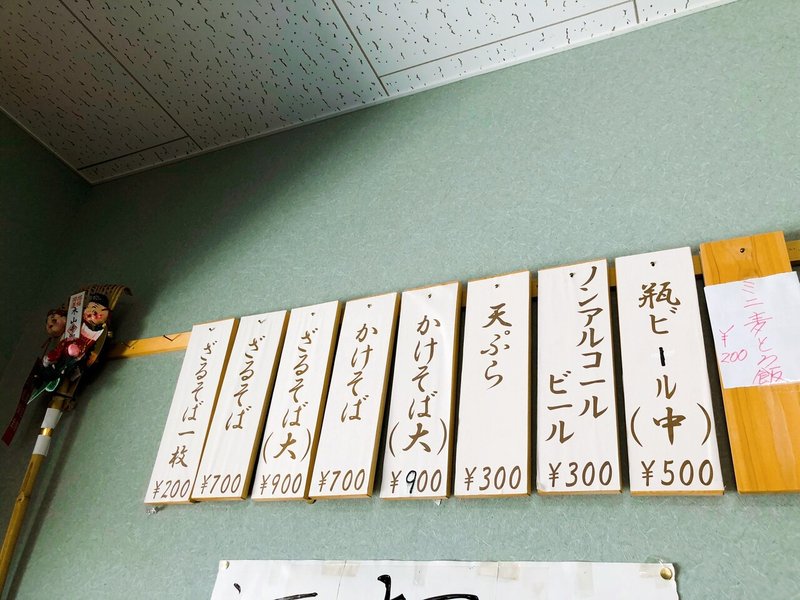 ミニ麦とろ飯
¥200
瓶ビール(中)
¥500
ノンアルコール
ビール
¥300
天ぷら
¥300
かけそば(大)
¥900
かけそば
¥700
ざるそば(大)
¥900
ざるそば
¥700
ざるそば一枚
¥200